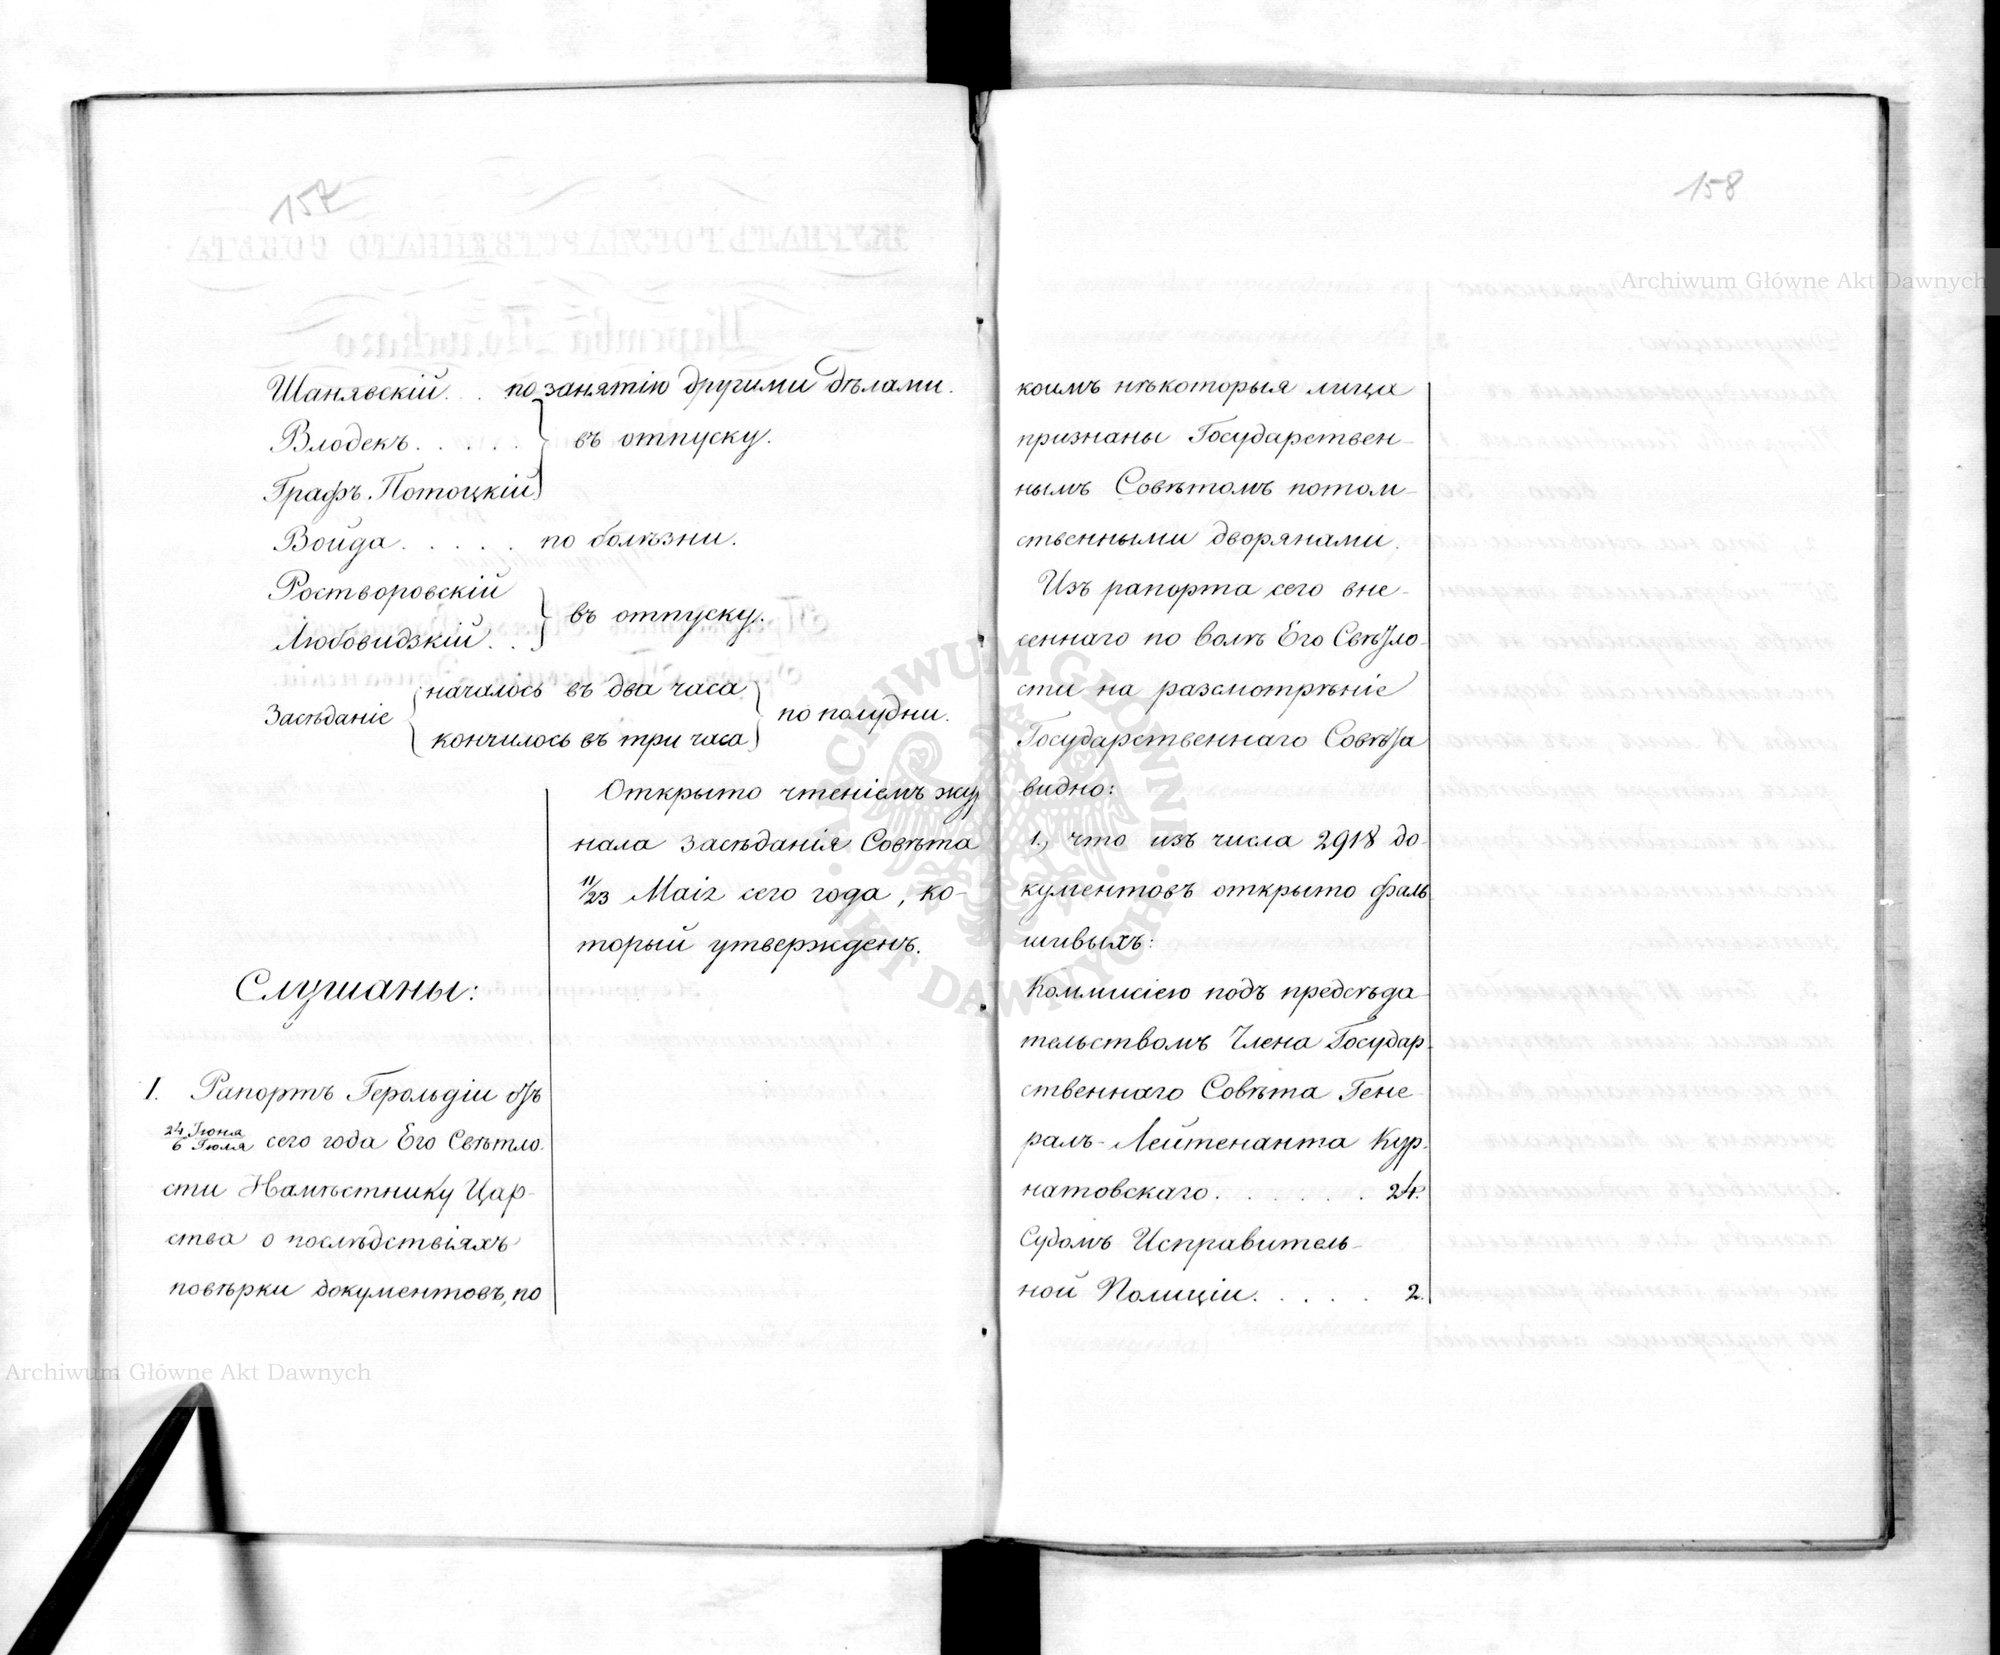 157
Шанявскій . . по занятію другими дѣлами.
Влодекъ . . . . . } въ отпуску.
Графъ Потоцкій
Войда . . . . . по болѣзни.
Ростворовскій } въ отпуску.
Любовидзкій . .
Засѣданіе { началось въ два часа } по полудни.
кончилось въ три часа
Открыто чтеніемъ жур
нала Засѣданія Совѣта
11/23 Маія сего года, ко-
торый утвержденъ.
Слушаны:
I. Рапортъ Герольдіи отъ
24 Іюня/6 Іюля сего года Его Свѣтло-
сти Намѣстнику Цар-
ства о послѣдствіяхъ
повѣрки документовъ, по
158
коимъ нѣкоторыя лица
признаны Государствен-
нымъ Совѣтомъ потом-
ственными дворянами.
Изъ рапорта сего вне-
сеннаго по волѣ Его Свѣтло-
сти на разсмотрѣніе
Государственнаго Совѣта
видно:
1., что изъ числа 2918 до-
кументовъ открыто фаль
шивыхъ:
Коммисіею подъ предсѣда-
тельствомъ Члена Государ-
ственнаго Совѣта Гене-
ралъ-Лейтенанта Кур-
натовскаго . . . . . . 24.
Судомъ Исправитель-
ной Полиціи . . . . . 2.
Archiwum Główne Akt Dawnych
Archiwum Główne Akt Dawnych
ARCHIWUM GŁÓWNE AKT DAWNYCH